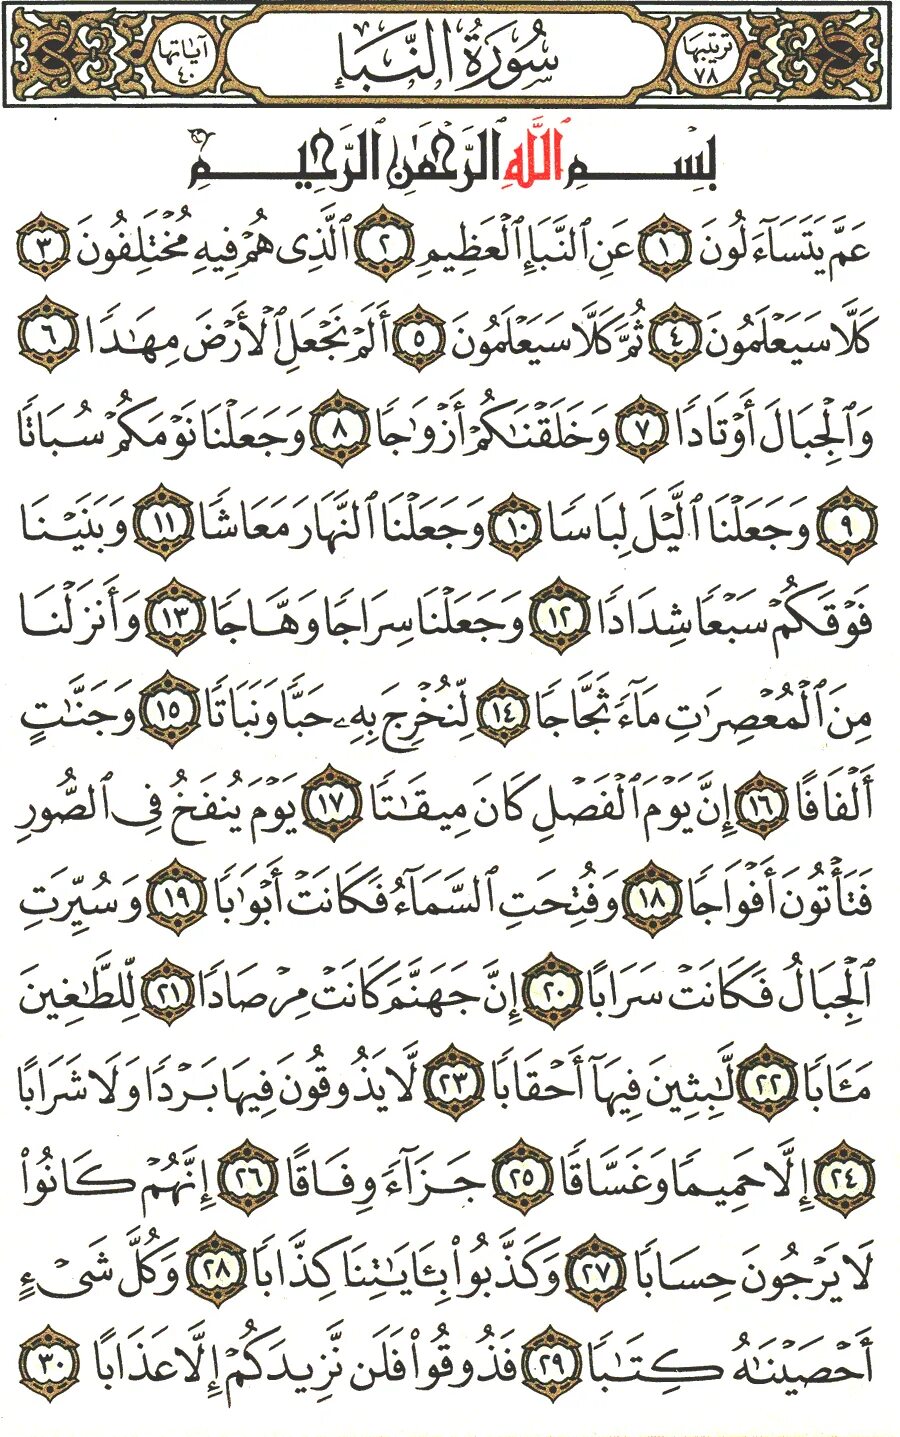 ترتيبها ٧٨ سُورَةُ النَّبَإِ آياتها ٤٠
بِسْمِ ٱللَّهِ ٱلرَّحْمَٰنِ ٱلرَّحِيمِ
عَمَّ يَتَسَآءَلُونَ ١ عَنِ ٱلنَّبَإِ ٱلْعَظِيمِ ٢ ٱلَّذِى هُمْ فِيهِ مُخْتَلِفُونَ ٣
كَلَّا سَيَعْلَمُونَ ٤ ثُمَّ كَلَّا سَيَعْلَمُونَ ٥ أَلَمْ نَجْعَلِ ٱلْأَرْضَ مِهَٰدًا ٦
وَٱلْجِبَالَ أَوْتَادًا ٧ وَخَلَقْنَٰكُمْ أَزْوَٰجًا ٨ وَجَعَلْنَا نَوْمَكُمْ سُبَاتًا
٩ وَجَعَلْنَا ٱلَّيْلَ لِبَاسًا ١٠ وَجَعَلْنَا ٱلنَّهَارَ مَعَاشًا ١١ وَبَنَيْنَا
فَوْقَكُمْ سَبْعًا شِدَادًا ١٢ وَجَعَلْنَا سِرَاجًا وَهَّاجًا ١٣ وَأَنزَلْنَا
مِنَ ٱلْمُعْصِرَٰتِ مَآءً ثَجَّاجًا ١٤ لِّنُخْرِجَ بِهِۦ حَبًّا وَنَبَاتًا ١٥ وَجَنَّٰتٍ
أَلْفَافًا ١٦ إِنَّ يَوْمَ ٱلْفَصْلِ كَانَ مِيقَٰتًا ١٧ يَوْمَ يُنفَخُ فِى ٱلصُّورِ
فَتَأْتُونَ أَفْوَاجًا ١٨ وَفُتِحَتِ ٱلسَّمَآءُ فَكَانَتْ أَبْوَٰبًا ١٩ وَسُيِّرَتِ
ٱلْجِبَالُ فَكَانَتْ سَرَابًا ٢٠ إِنَّ جَهَنَّمَ كَانَتْ مِرْصَادًا ٢١ لِّلطَّٰغِينَ
مَـَٔابًا ٢٢ لَّٰبِثِينَ فِيهَآ أَحْقَابًا ٢٣ لَّا يَذُوقُونَ فِيهَا بَرْدًا وَلَا شَرَابًا
٢٤ إِلَّا حَمِيمًا وَغَسَّاقًا ٢٥ جَزَآءً وِفَاقًا ٢٦ إِنَّهُمْ كَانُوا۟
لَا يَرْجُونَ حِسَابًا ٢٧ وَكَذَّبُوا۟ بِـَٔايَٰتِنَا كِذَّابًا ٢٨ وَكُلَّ شَىْءٍ
أَحْصَيْنَٰهُ كِتَٰبًا ٢٩ فَذُوقُوا۟ فَلَن نَّزِيدَكُمْ إِلَّا عَذَابًا ٣٠